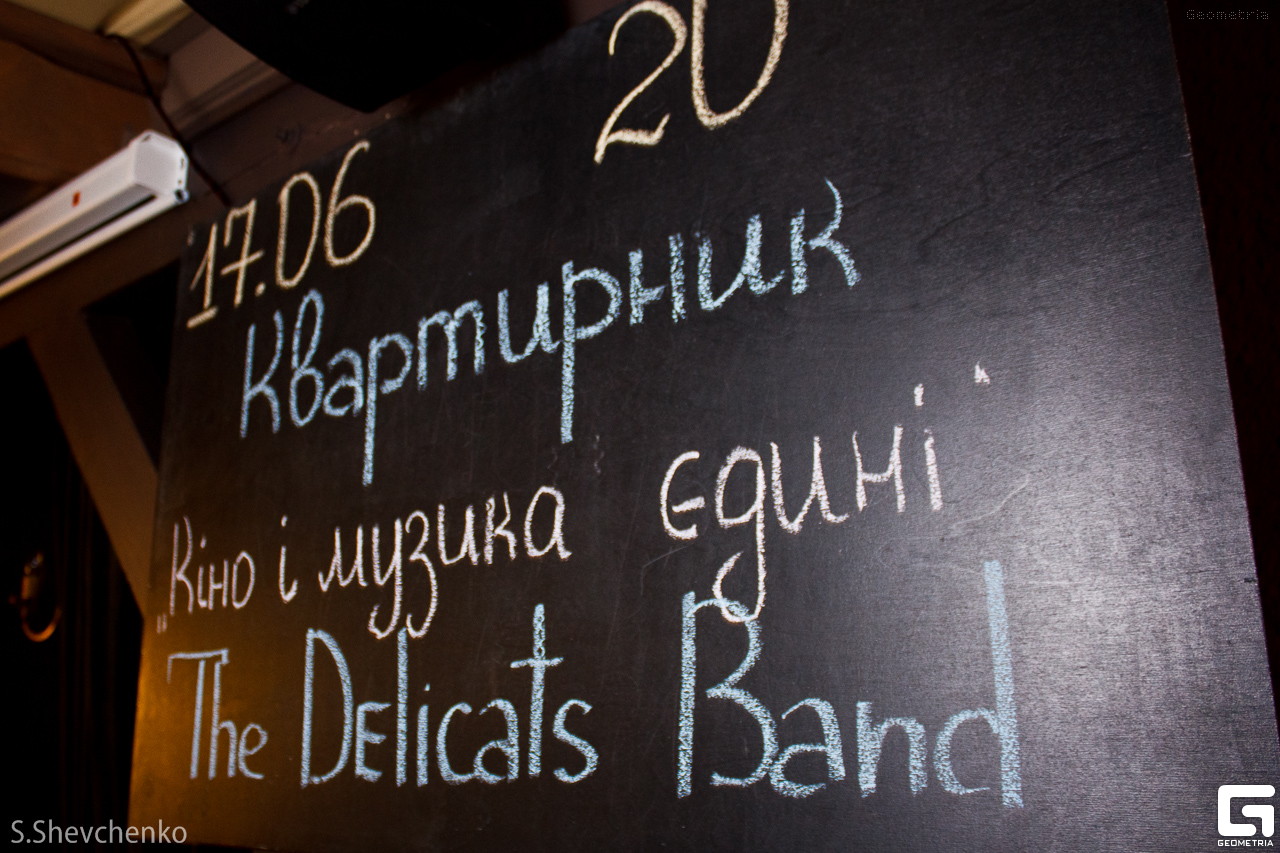 Geometria
17.06 20
Квартирник
„Кіно і музика єдині"
The Delicats Band
S.Shevchenko
G
GEOMETRIA